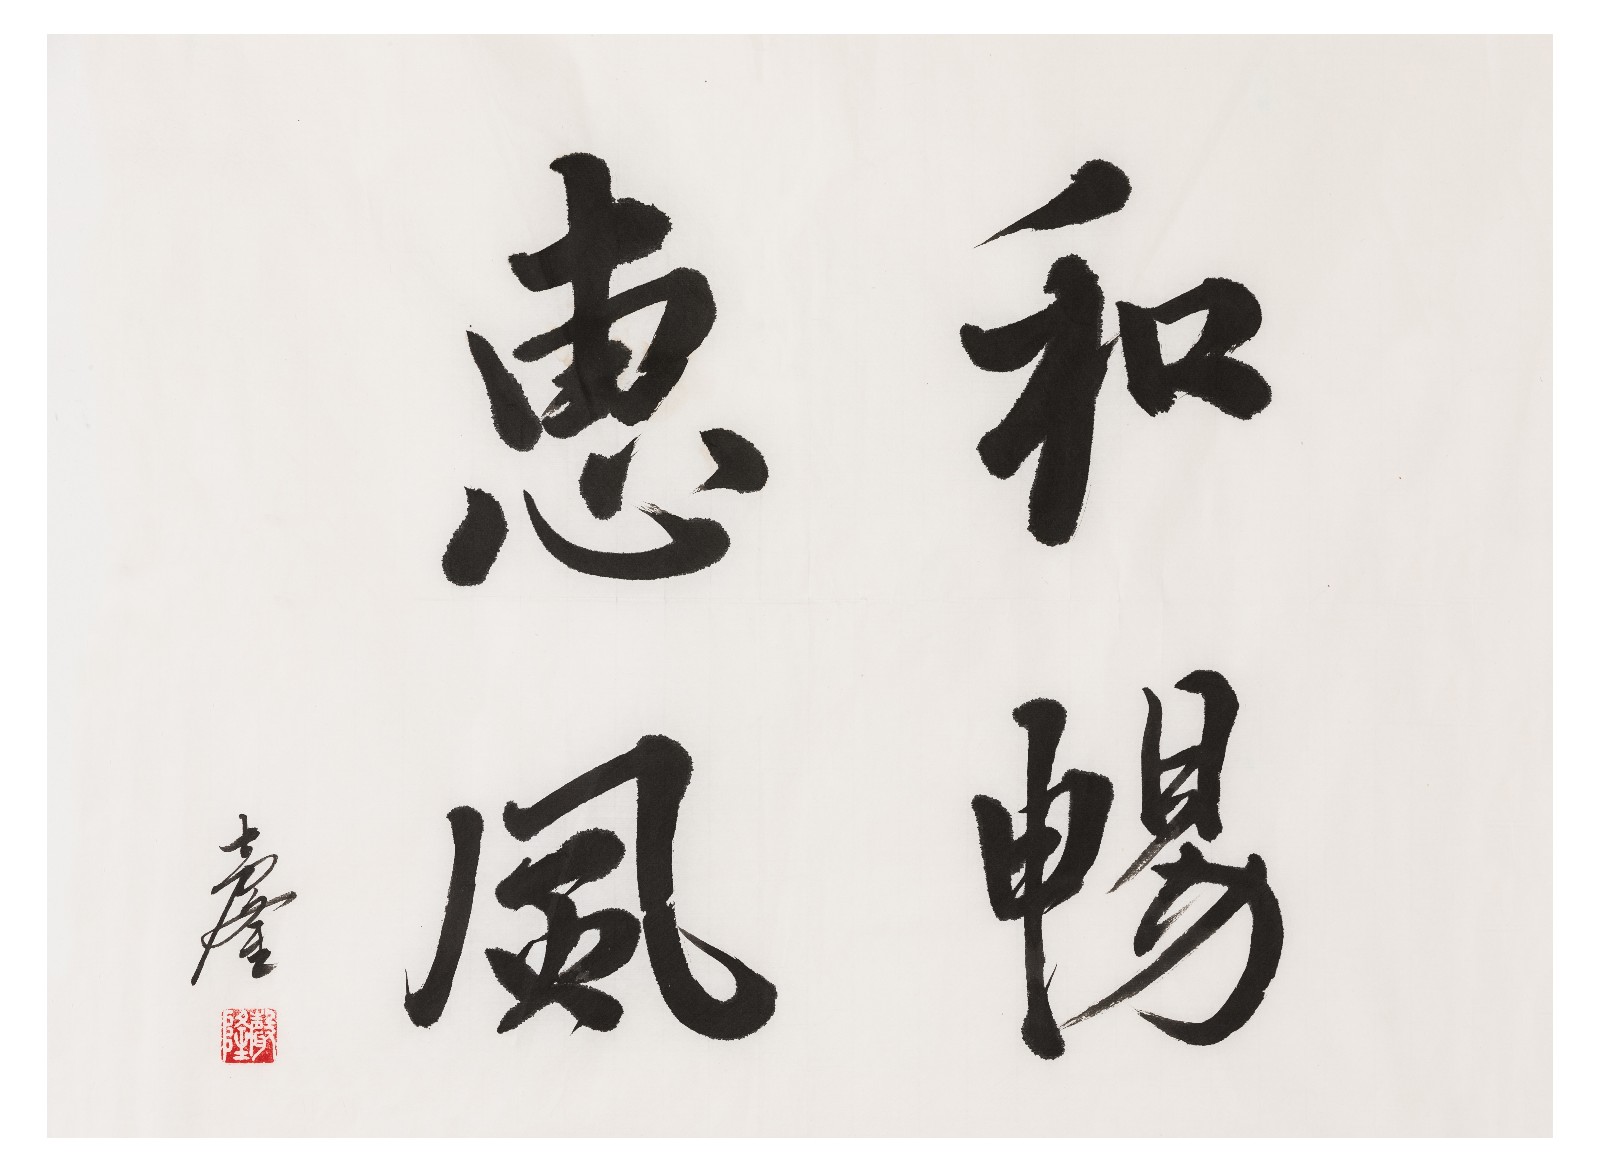 和暢
惠風